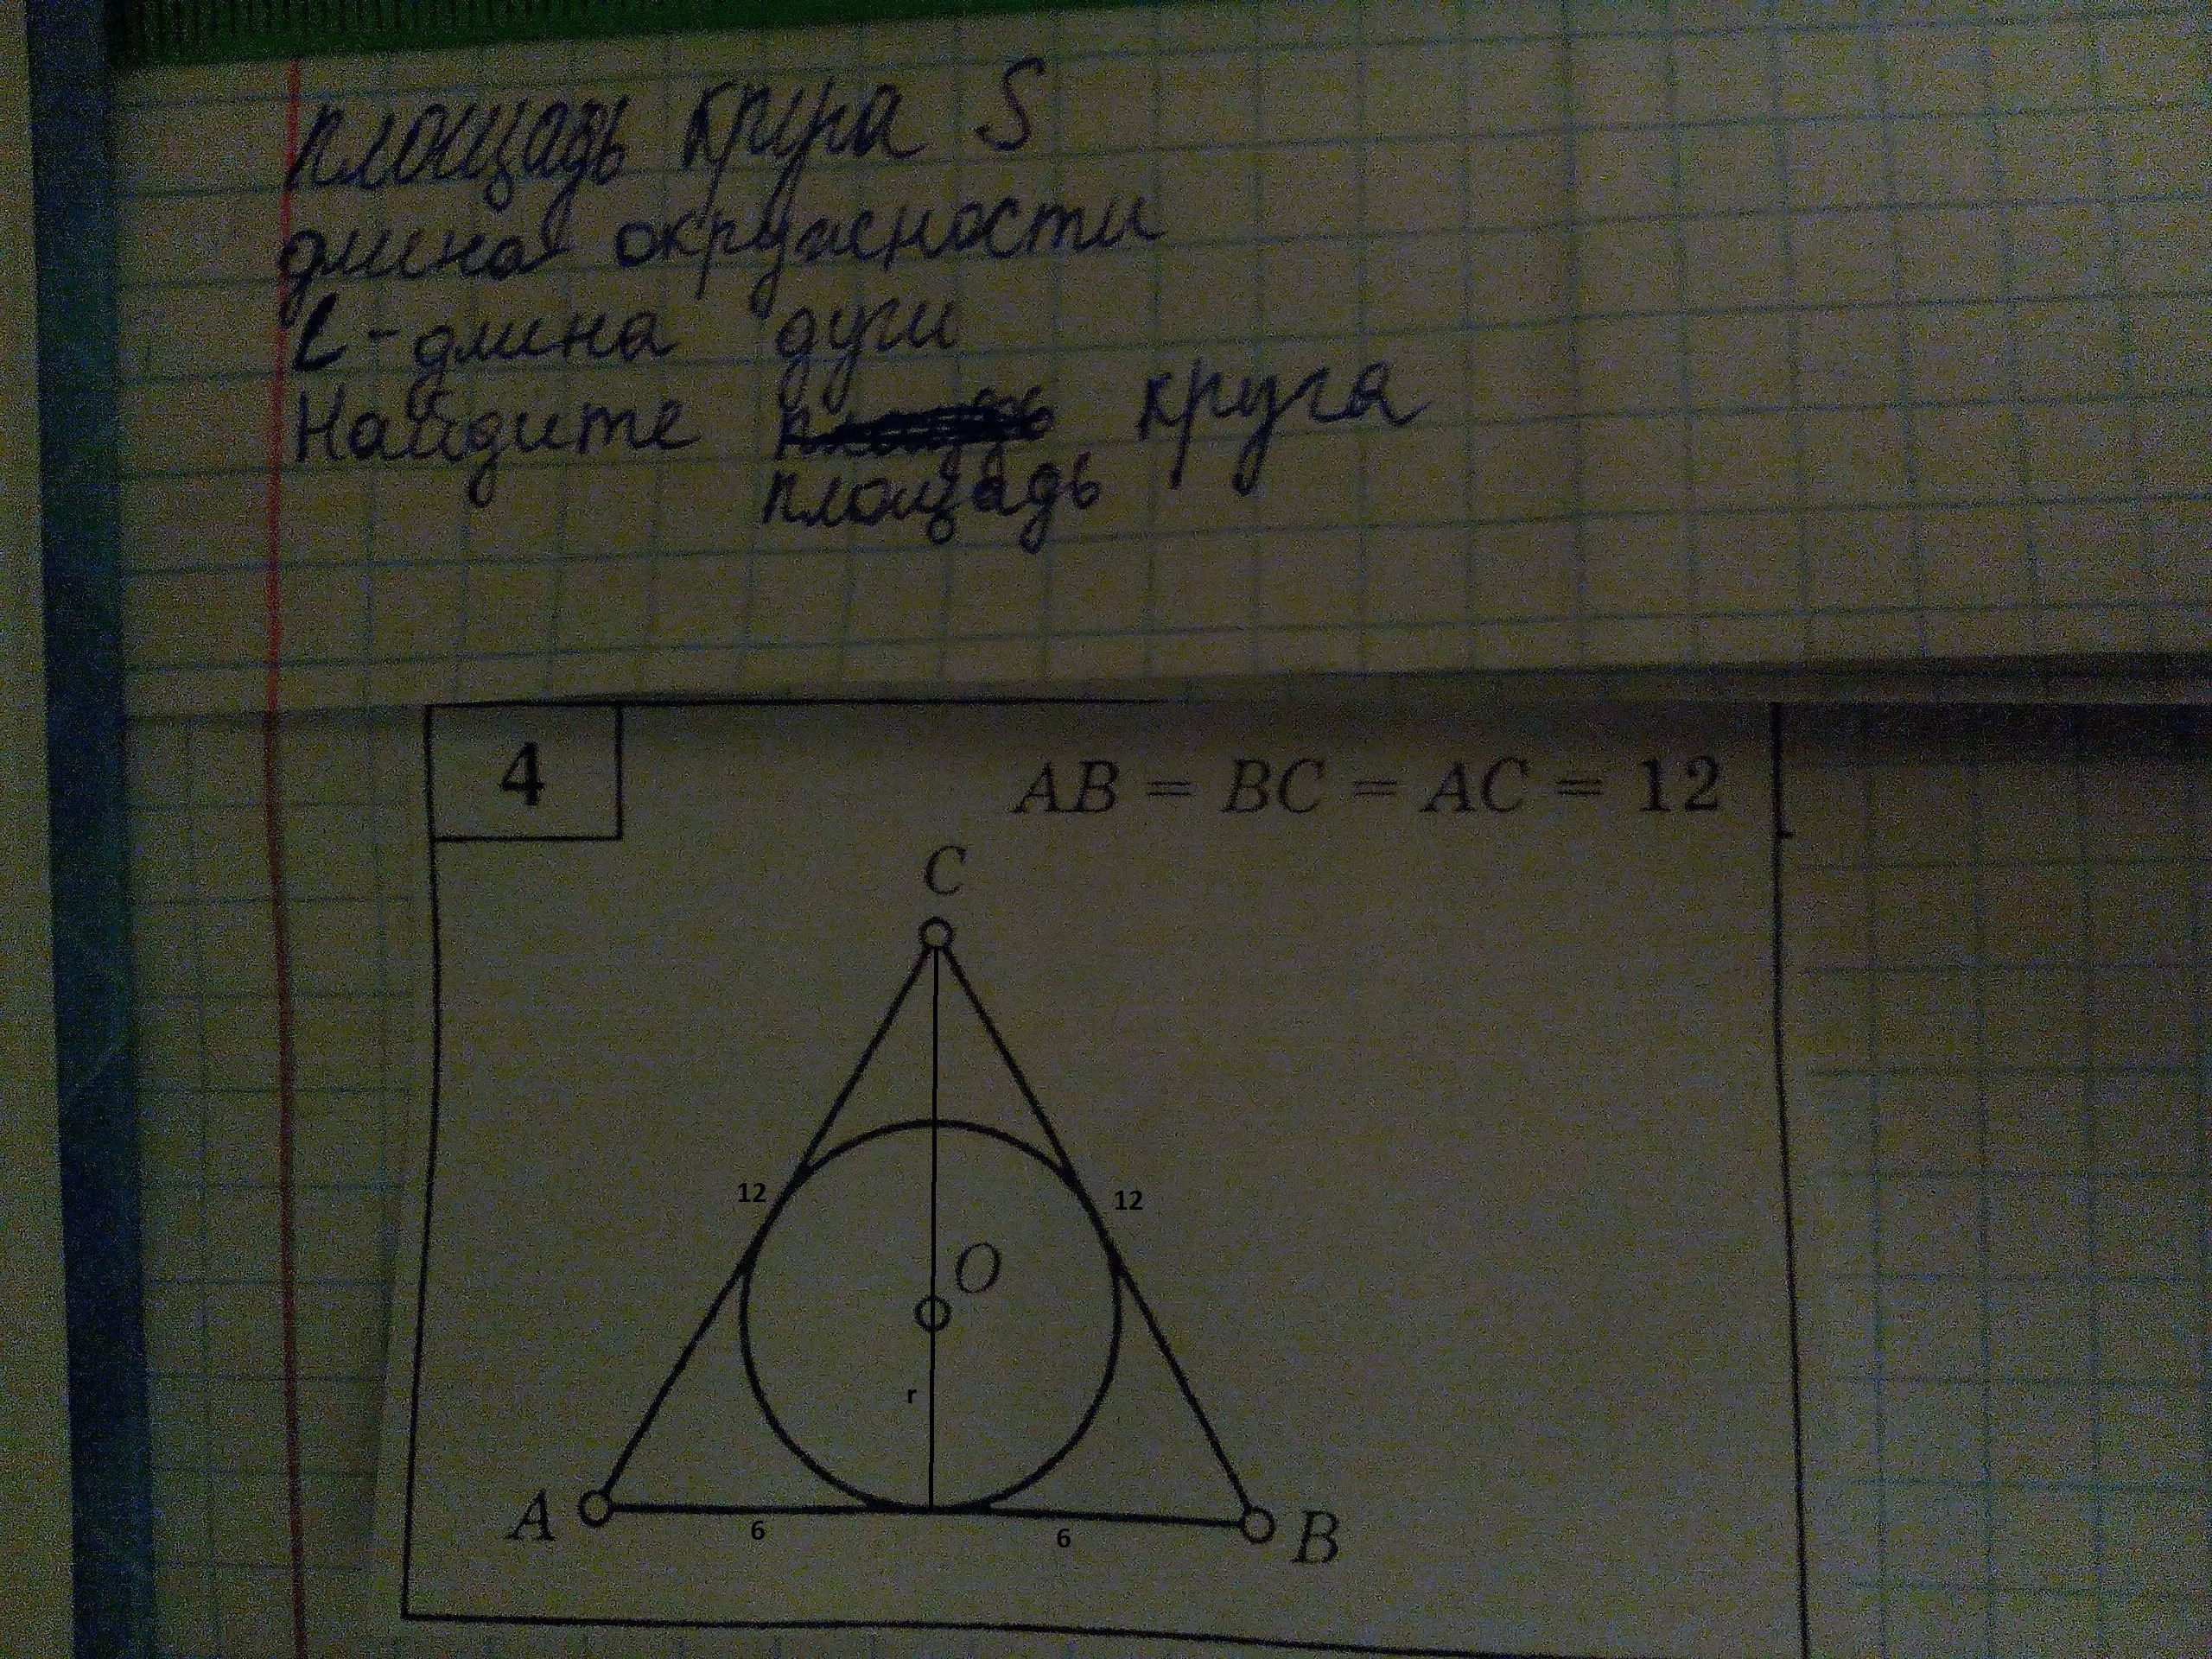 площадь круга S
длина окружности
L - длина дуги
Найдите площадь круга
4
AB = BC = AC = 12
C
12
12
O
r
A
6
6
B